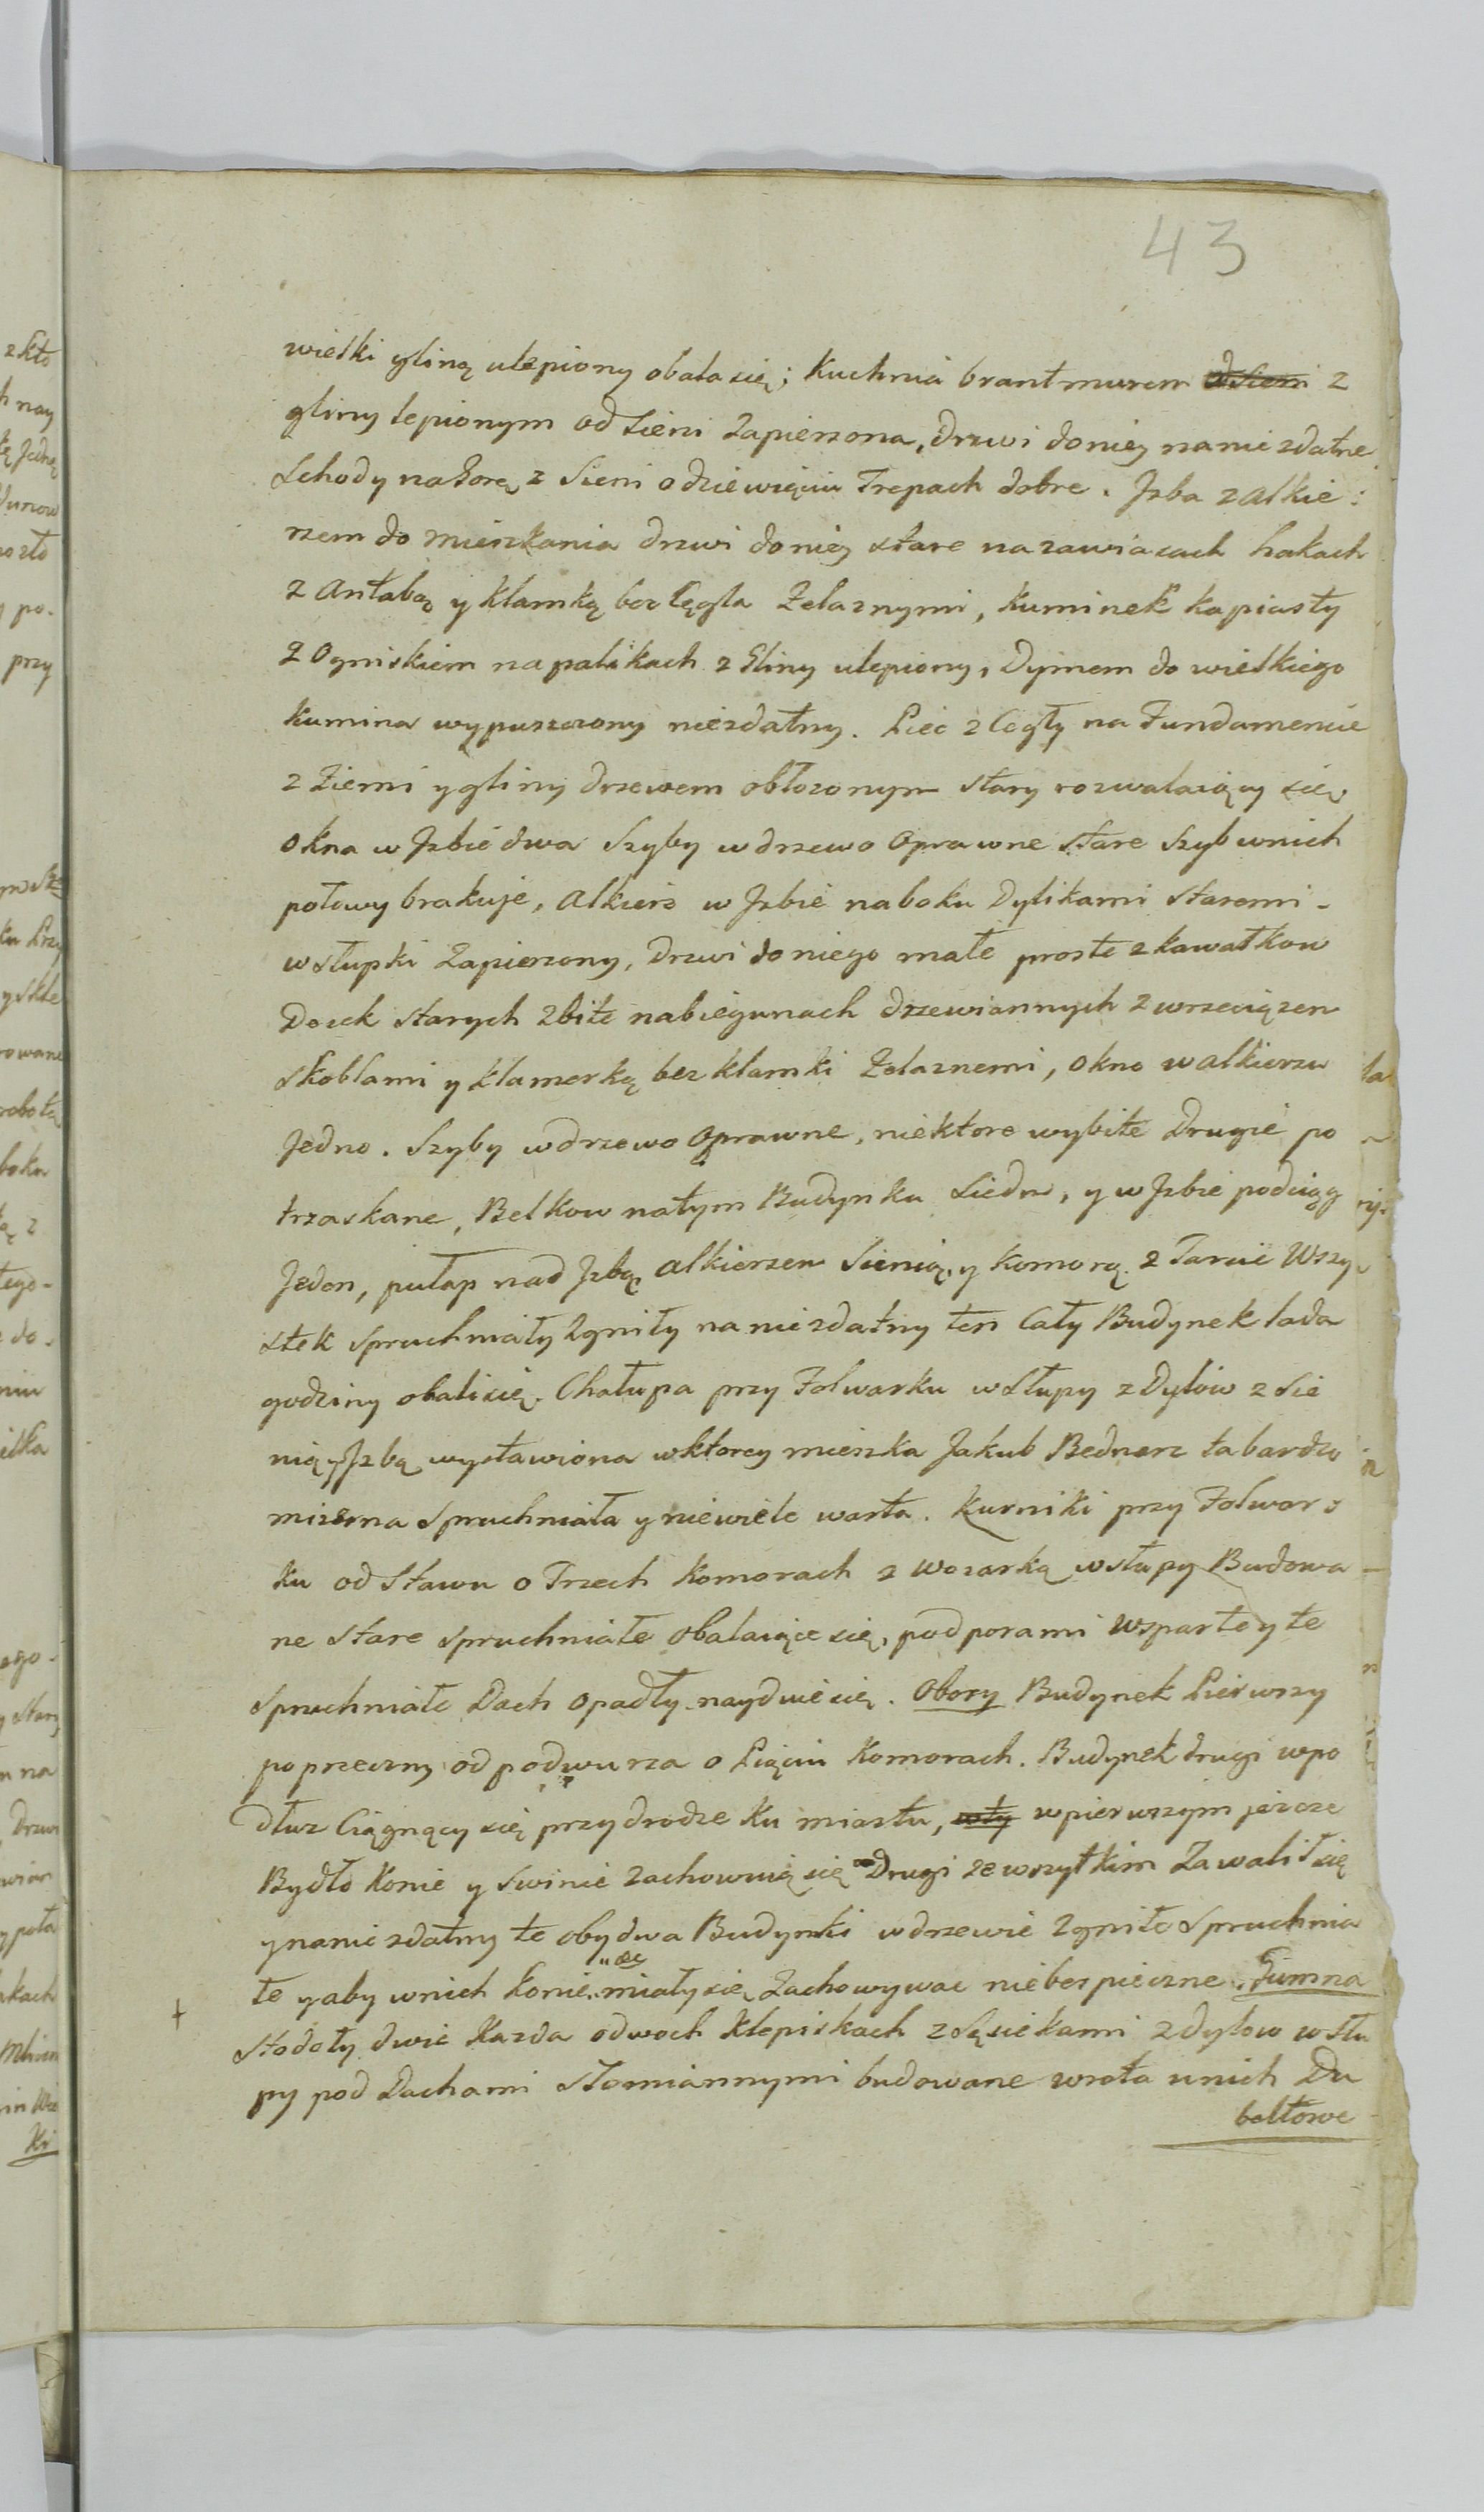 43
wielki y gliną ulepiony obala się; Kuchnia brantmurem od Sieni z
gliny lepionym od Sieni zapierzona, drzwi do niey na nie zdatne
Schody na Gorę z Sieni o dziewięciu Trepach dobre. Jzba z Alkie:
rzem do mieszkania drzwi do niey stare na zawiasach hakach
z Antabą y klamką bez Cęgla Zelaznymi, Kuminek kapiasty
z Ogniskiem na palikach z Gliny ulepiony, Dymem do wielkiego
Kumina wypuszczony niezdatny. Piec z Cegły na Fundamencie
z Ziemi y gliny drzewem obłozonym stary rozwalaiący się
Okna w Jzbie dwa Szyby w drzewo Oprawne Stare Szyb w nich
połowy brakuje, Alkierz w Jzbie na boku Dylikami staremi
w słupki Zapierzony, Drzwi do niego małe proste z kawałkow
Desek starych zbite na biegunach drzewiannych z wrzeciązem
Skoblami y klamerką bez klamki Zelaznemi, Okno w alkierzu
Jedno. Szyby w drzewo Oprawne, niektore wybite Drugie po
trzaskane, Belkow na tym Budynku Siedm, y w Jzbie podciąg
Jeden, pułap nad Jzbą alkierzem Sienią, y Komorą z Tarcic Wszy
stek spruchniały zgniły na niezdatny ten Cały Budynek lada
godziny obali się. Chałupa przy Folwarku w Słupy z Dylow z Sie
nią y Jzbą wystawiona w ktorey mieszka Jakub Bednarz ta bardzo
mizerna spruchniała y niewiele warta. Kurniki przy Folwar
ku od Stawu o Trzech Komorach z wozarką w słupy Budowa
ne stare spruchniałe obalaiące się, podporami wsparte y te
Spruchniałe Dach opadły nayduie się. Obory Budynek Pierwszy
poprzeczny od podwurza o Pięciu Komorach. Budynek drugi wpo
dłuz Ciągnący się przy drodze Ku miastu, wpierwszym jeszcze
Bydło Konie y Swinie zachownią się Drugi ze wszytkim Zawalił się
y na nie zdatny te obydwa Budynki w drzewie zgniłe Spruchnia
łe y aby w nich Konie miały się Zachowywac niebezpieczne. Gumna
Stodoły dwie Kazda o dwoch Klepiskach z Sąsiekami z dylow w Słu
py pod Dachami Słomiannymi budowane wrota u nich Du
beltowe